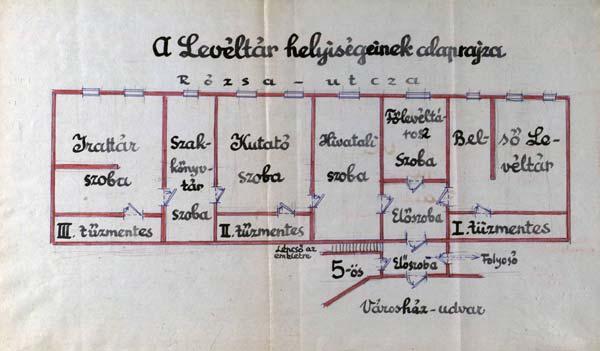 A Levéltár helyiségeinek alaprajza
Rózsa-utcza
Irattár
szoba
Szak-
könyv-
tár
szoba
Kutató
szoba
Hivatali
szoba
Főlevéltá-
ros
Szoba
Bel-
ső Le-
véltár
Előszoba
III. tűzmentes
II. tűzmentes
I. tűzmentes
Lépcső az
emeletre
5-ös
Előszoba
Folyosó
Városház-udvar